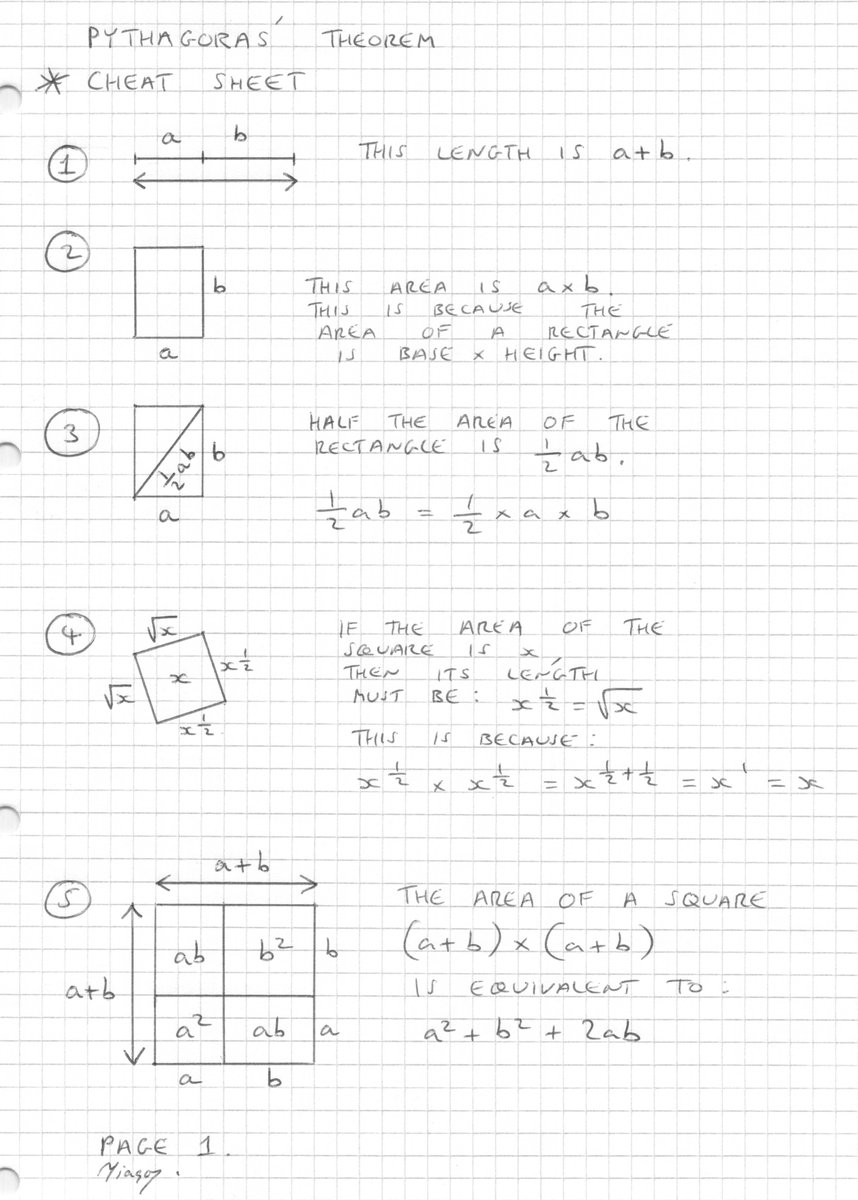 PYTHAGORAS' THEOREM
* CHEAT SHEET
1
a b
THIS LENGTH IS a+b.
2
b
a
THIS AREA IS a×b.
THIS IS BECAUSE THE
AREA OF A RECTANGLE
IS BASE × HEIGHT.
3
½ab b
a
HALF THE AREA OF THE
RECTANGLE IS ½ab.
½ab = ½ × a × b
4
√x
√x x x^½
x^½
IF THE AREA OF THE
SQUARE IS x
THEN ITS LENGTH
MUST BE: x^½ = √x
THIS IS BECAUSE:
x^½ × x^½ = x^(½+½) = x¹ = x
5
a+b
a+b
ab b² b
a² ab a
a b
THE AREA OF A SQUARE
(a+b)×(a+b)
IS EQUIVALENT TO:
a² + b² + 2ab
PAGE 1.